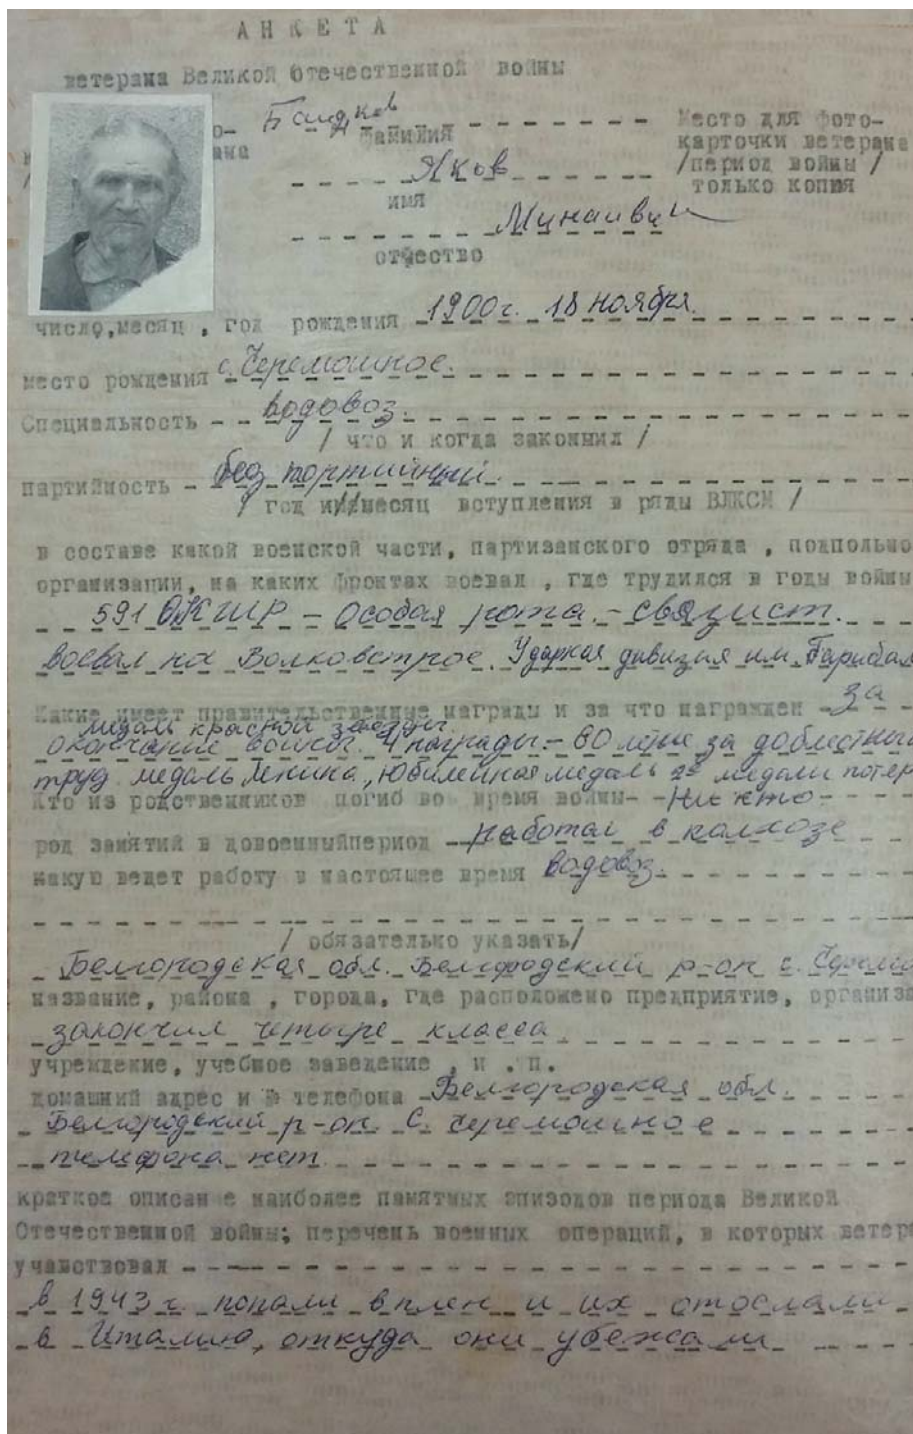 АНКЕТА
ветерана Великой Отечественной войны
фамилия
Место для фото-
карточки ветерана
Яков
/период войны /
только копия
имя
отчество
число,месяц , год рождения 1900г. 18 ноября.
место рождения с. Черемошное.
Специальность водовоз.
/ что и когда закончил /
партийность без портийный.
/ год и месяц вступления в ряды ВЛКСМ /
в составе какой военской части, партизанского отряда , подпольно
организации, на каких фронтах воевал , где трудился в годы войны
591 - Особая рота - связист.
воевал на Волховстрое. Ударная дивизия им. Гарибал
Какие имеет правительственные награды и за что награжден за
медаль красной звезды
окончание войны. 4 награды - 60 летие за доблестный
труд. медаль Ленина, юбилейная медаль 2е медали потер
Кто из родственников погиб во время войны- Никто
род занятий в довоенныйпериод работал в калхозе
какую ведет работу в настоящее время водовоз.
/ обязательно указать/
Белгородская обл. Белгородский р-он с. Черемо
название, района , города, где расположено предприятие, организа
закончил четыре класса
учреждение, учебное заведение , и .п.
домашний адрес и № телефона Белгородская обл.
Белгородский р-он. С. Черемошное
телефона нет.
краткое описан е наиболее памятных эпизодов периода Великой
Отечественной войны; перечень военных операций, в которых ветера
учавствовал
в 1943 г. попали в плен и их отослали
в Италию, откуда они убежали